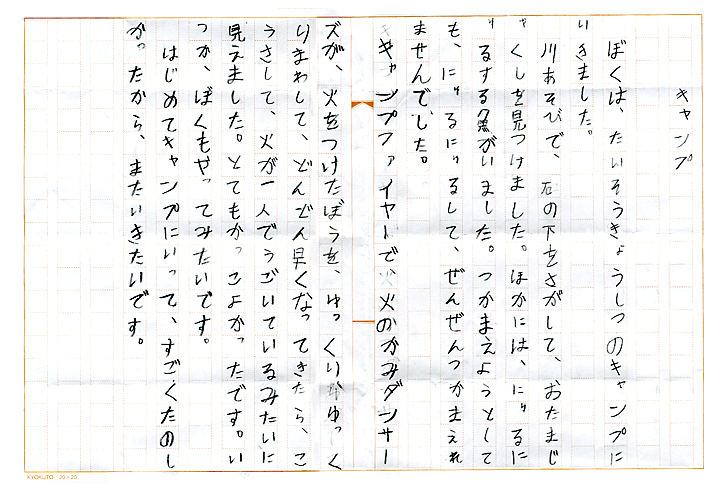 キャンプ
ぼくは、たいそうきょうしつのキャンプに
いきました。
川あそびで、石の下をさがして、おたまじ
ゃくしを見つけました。ほかには、にゅるに
ゅるする魚がいました。つかまえようとして
も、にゅるにゅるして、ぜんぜんつかまえれ
ませんでした。
キャンプファイヤーで火のかみダンサー
ズが、火をつけたぼうを、ゆっくりゆっく
りまわして、どんどん早くなってきたら、こ
うさして、火が一人でうごいているみたいに
見えました。とてもかっこよかったです。い
つか、ぼくもやってみたいです。
はじめてキャンプにいって、すごくたのし
かったから、またいきたいです。
KYOKUTO 20×20